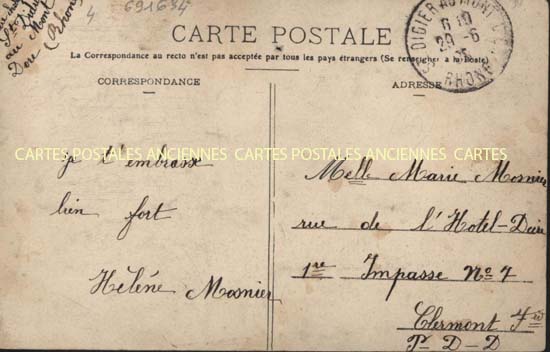 St
au Mont
Dore (Rhone)
4
691634
CARTE POSTALE
La Correspondance au recto n'est pas acceptée par tous les pays étrangers (Se renseigner à la Poste)
CORRESPONDANCE
ADRESSE
DIDIER AU MONT D'OR
6
29-6
RHONE
CARTES POSTALES ANCIENNES CARTES POSTALES ANCIENNES CARTES
je t'embrasse
bien fort
Hélène Mosnier
Melle Marie Mosnier
rue de l'Hotel-Dieu
1re Impasse No 7
Clermont Fd
P-D-D